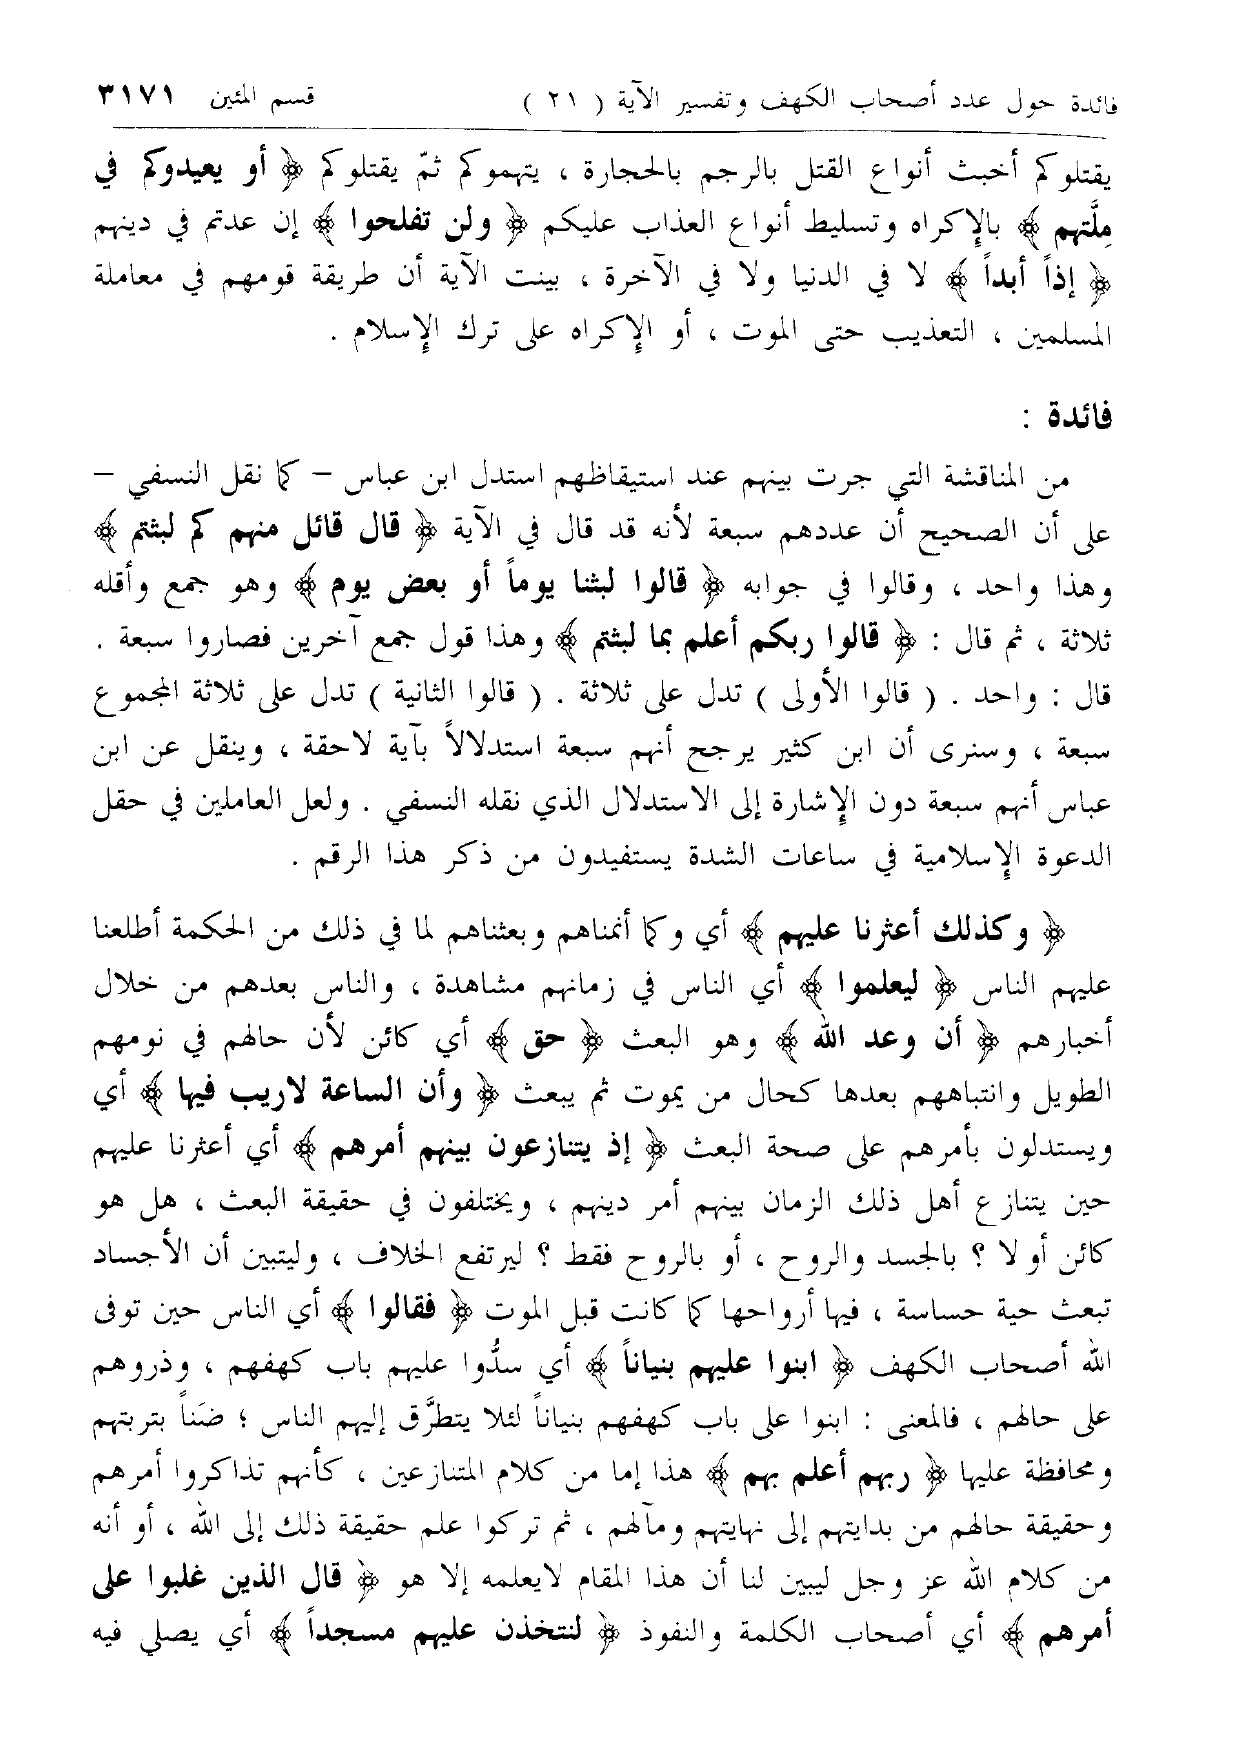 فائدة حول عدد أصحاب الكهف وتفسير الآية ( ٢١ ) قسم المئين ٣١٧١
يقتلوكم أخبث أنواع القتل بالرجم بالحجارة ، يتهموكم ثمّ يقتلوكم ﴿ أو يعيدوكم في
مِلَّتهم ﴾ بالإكراه وتسليط أنواع العذاب عليكم ﴿ ولن تفلحوا ﴾ إن عدتم في دينهم
﴿ إذاً أبداً ﴾ لا في الدنيا ولا في الآخرة ، بينت الآية أن طريقة قومهم في معاملة
المسلمين ، التعذيب حتى الموت ، أو الإكراه على ترك الإسلام .
فائدة :
من المناقشة التي جرت بينهم عند استيقاظهم استدل ابن عباس – كما نقل النسفي –
على أن الصحيح أن عددهم سبعة لأنه قد قال في الآية ﴿ قال قائل منهم كم لبثتم ﴾
وهذا واحد ، وقالوا في جوابه ﴿ قالوا لبثنا يوماً أو بعض يوم ﴾ وهو جمع وأقله
ثلاثة ، ثم قال : ﴿ قالوا ربكم أعلم بما لبثتم ﴾ وهذا قول جمع آخرين فصاروا سبعة .
قال : واحد . ( قالوا الأولى ) تدل على ثلاثة . ( قالوا الثانية ) تدل على ثلاثة المجموع
سبعة ، وسنرى أن ابن كثير يرجح أنهم سبعة استدلالاً بآية لاحقة ، وينقل عن ابن
عباس أنهم سبعة دون الإشارة إلى الاستدلال الذي نقله النسفي . ولعل العاملين في حقل
الدعوة الإسلامية في ساعات الشدة يستفيدون من ذكر هذا الرقم .
﴿ وكذلك أعثرنا عليهم ﴾ أي وكما أنمناهم وبعثناهم لما في ذلك من الحكمة أطلعنا
عليهم الناس ﴿ ليعلموا ﴾ أي الناس في زمانهم مشاهدة ، والناس بعدهم من خلال
أخبارهم ﴿ أن وعد الله ﴾ وهو البعث ﴿ حق ﴾ أي كائن لأن حالهم في نومهم
الطويل وانتباههم بعدها كحال من يموت ثم يبعث ﴿ وأن الساعة لاريب فيها ﴾ أي
ويستدلون بأمرهم على صحة البعث ﴿ إذ يتنازعون بينهم أمرهم ﴾ أي أعثرنا عليهم
حين يتنازع أهل ذلك الزمان بينهم أمر دينهم ، ويختلفون في حقيقة البعث ، هل هو
كائن أو لا ؟ بالجسد والروح ، أو بالروح فقط ؟ ليرتفع الخلاف ، وليتبين أن الأجساد
تبعث حية حساسة ، فيها أرواحها كما كانت قبل الموت ﴿ فقالوا ﴾ أي الناس حين توفى
الله أصحاب الكهف ﴿ ابنوا عليهم بنياناً ﴾ أي سدُّوا عليهم باب كهفهم ، وذروهم
على حالهم ، فالمعنى : ابنوا على باب كهفهم بنياناً لئلا يتطرَّق إليهم الناس ؛ ضَناً بتربتهم
ومحافظة عليها ﴿ ربهم أعلم بهم ﴾ هذا إما من كلام المتنازعين ، كأنهم تذاكروا أمرهم
وحقيقة حالهم من بدايتهم إلى نهايتهم ومآلهم ، ثم تركوا علم حقيقة ذلك إلى الله ، أو أنه
من كلام الله عز وجل ليبين لنا أن هذا المقام لايعلمه إلا هو ﴿ قال الذين غلبوا على
أمرهم ﴾ أي أصحاب الكلمة والنفوذ ﴿ لنتخذن عليهم مسجداً ﴾ أي يصلي فيه